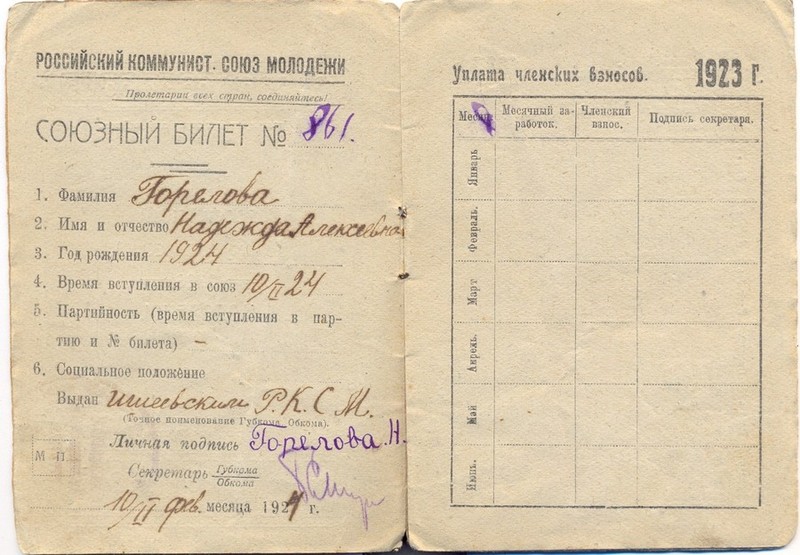 РОССИЙСКИЙ КОММУНИСТ. СОЮЗ МОЛОДЕЖИ
Пролетарии всех стран, соединяйтесь!
СОЮЗНЫЙ БИЛЕТ № 861.
1. Фамилия Горелова
2. Имя и отчество Надежда Алексеевна
3. Год рождения 1924
4. Время вступления в союз 10/II 24
5. Партийность (время вступления в пар-
тию и № билета) –
6. Социальное положение
Выдан Р.К.С.М.
(Точное наименование Губкома, Обкома).
Личная подпись Горелова.Н.
М П
Секретарь Губкома
Обкома
10/II фев. месяца 1924 г.
Уплата членских взносов. 1923 г.
Месяц
Месячный за-
работок.
Членский
взнос.
Подпись секретаря.
Январь
Февраль.
Март
Апрель.
Май
Июнь.